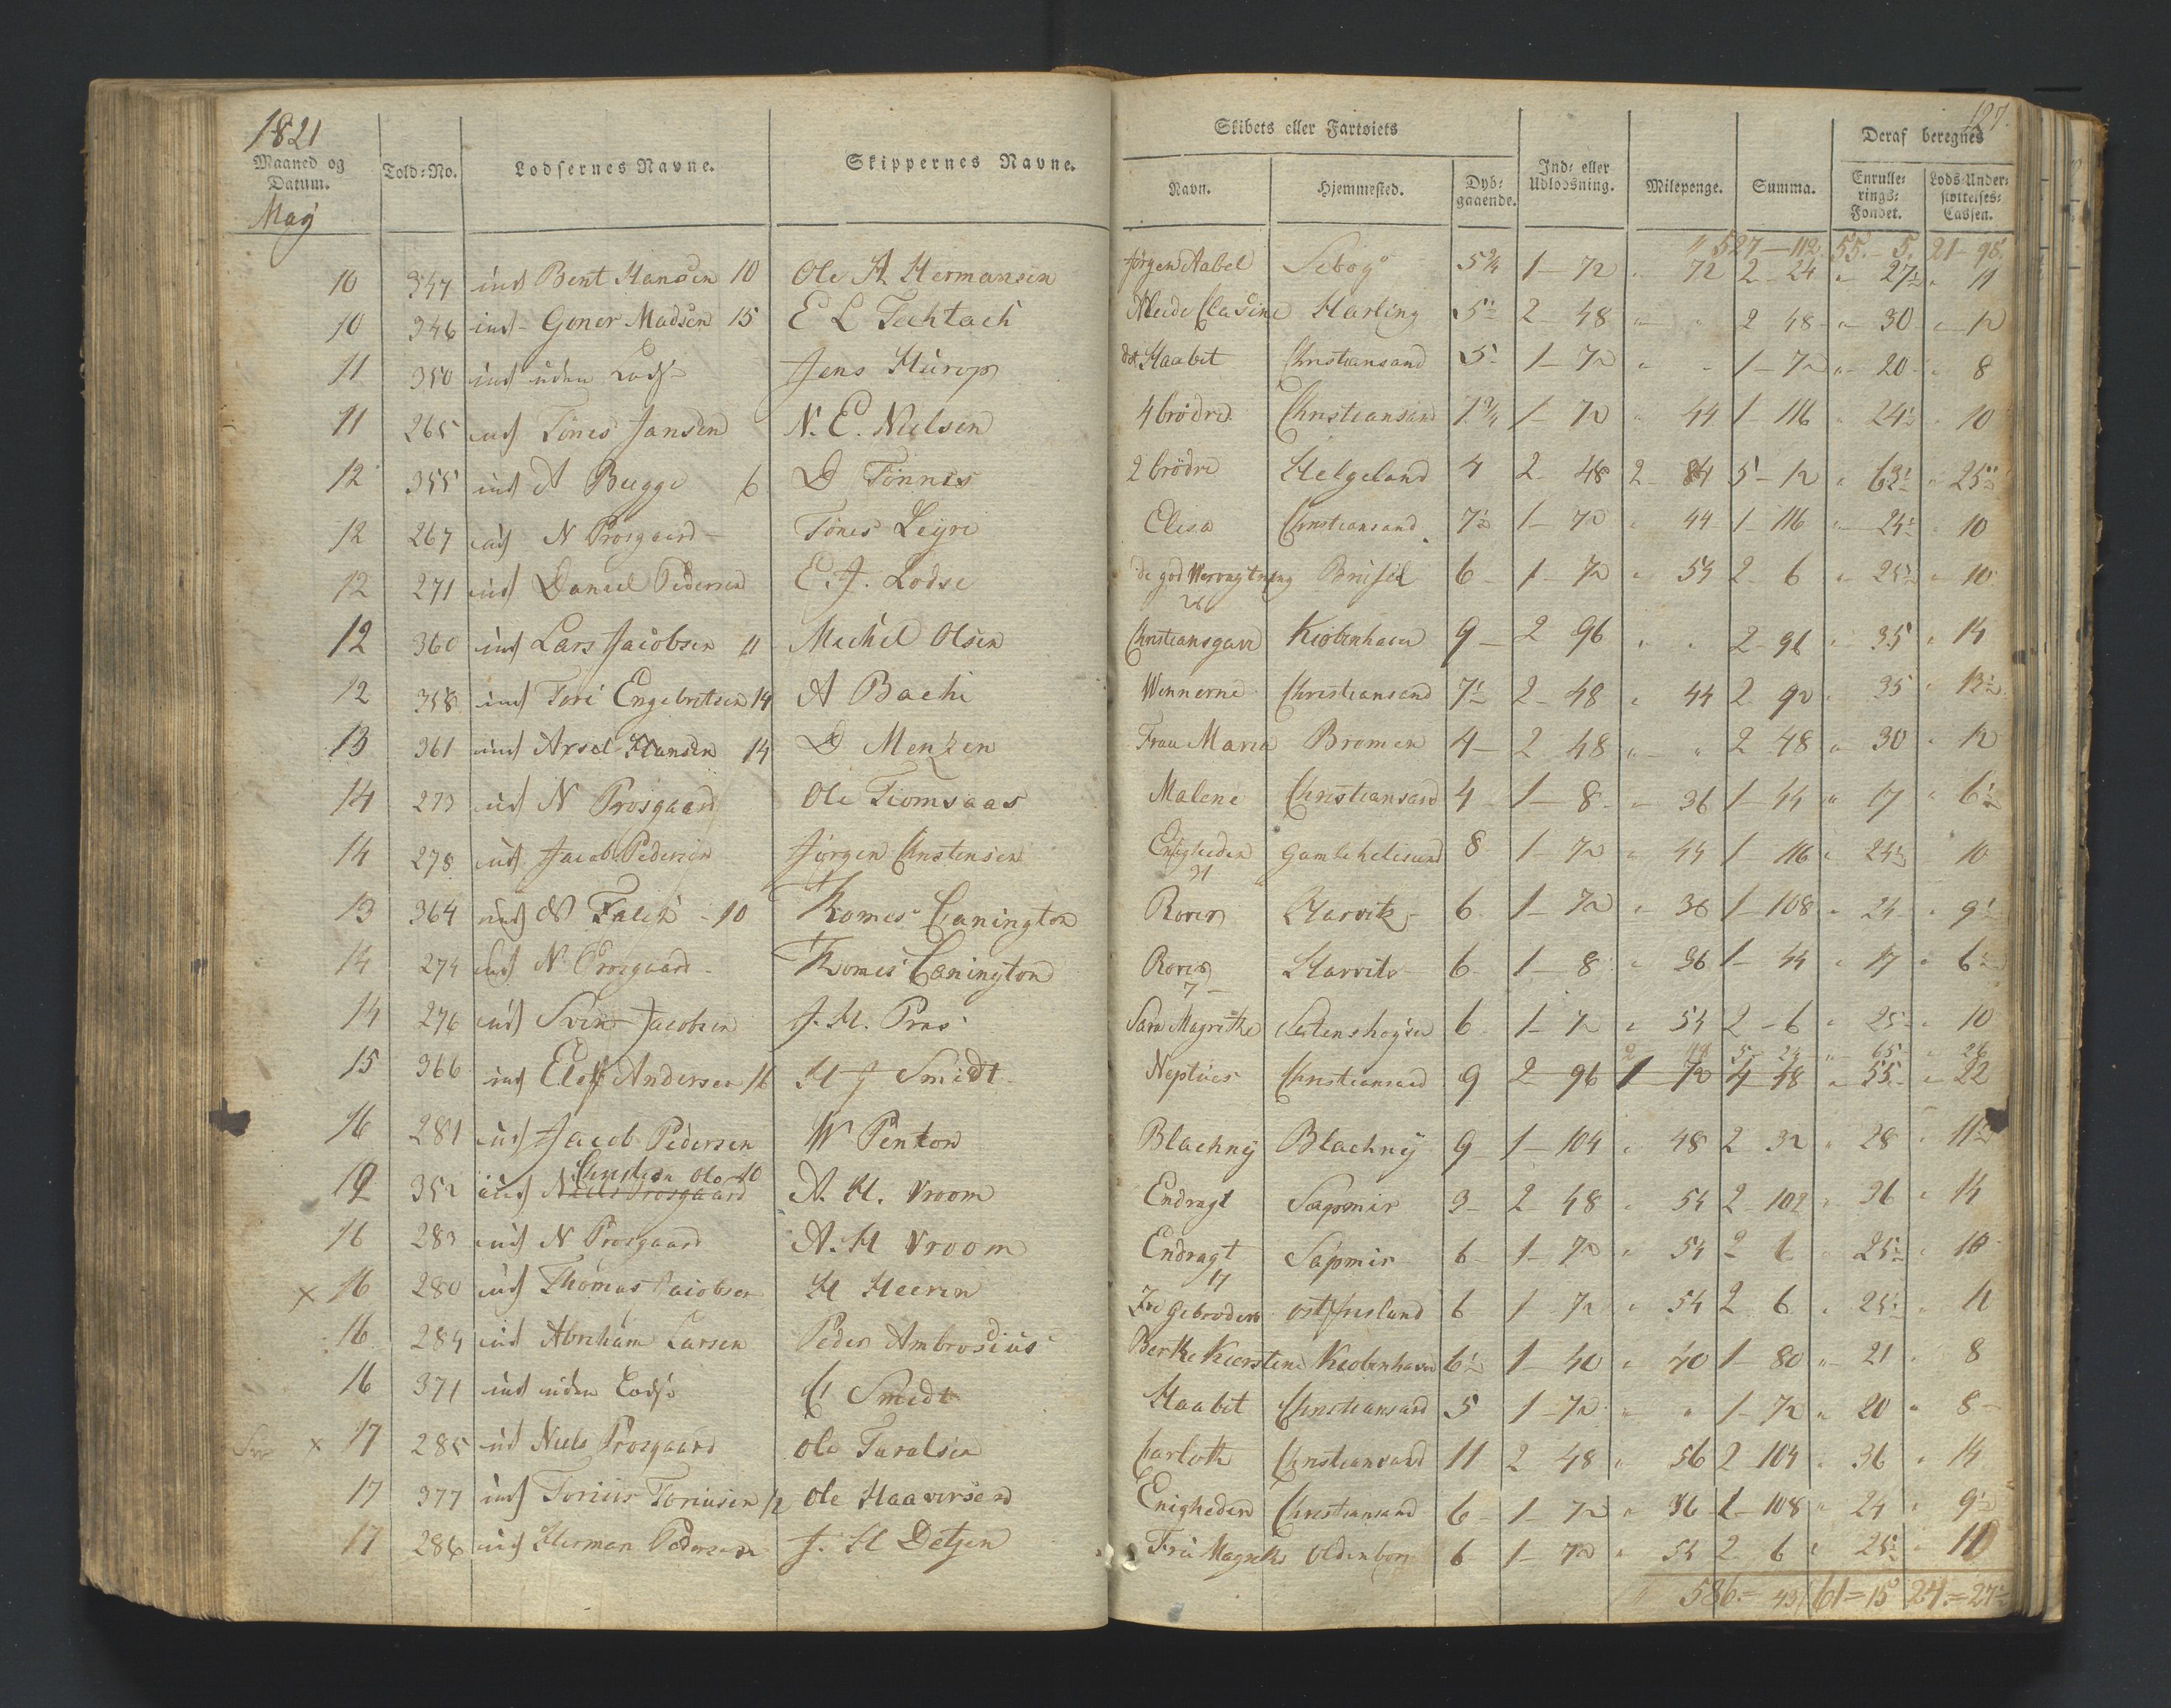 1821
127.
Maaned og Datum.
Told-No.
Lodsernes Navne.
Skippernes Navne.
Skibets eller Fartøiets
Navn.
Hjemmested.
Dyb-gaaende.
Ind- eller Udlodsning.
Milepenge.
Summa.
Deraf beregnes
Enrullerings-Fondet.
Lods-Understøttelses-Cassen.
May
527-112 55-5 21-95
10 347 ind Bent Hansen 10 Ole H Hermansen Jørgen Aabel 5 3/4 1-72 " 72 2-24 " 27½ " 11
10 346 ind Goner Madsen 15 E L Techtach Harling 5½ 2 48 " " 2 48 " 30 " 12
11 350 ind uden Lods Jens Hürop det Haabet Christiansand 5 1-72 " " 1-72 " 20 " 8
11 265 ud Tönes Jansen N. E. Nielsen 4 brödre Christiansand 7 3/4 1-72 " 44 1-116 " 24½ " 10
12 355 ind A Bugge 6 D Tönnes 2 brödre Helgeland 4 2 48 2 84 5-12 " 63½ " 25½
12 267 ud N Prosgaard Tönes Leyre Elisa Christiansand 7½ 1-72 " 44 1-116 " 24½ " 10
12 271 ud Daniel Pedersen E. J. Lodse de god 6 1-72 " 54 2 6 " 25½ " 10
26
12 360 ind Lars Jacobsen 11 Michel Olsen Christiansgave Kiobenhavn 9 2 96 " " 2-96 " 35 " 14
12 358 ind Tore Engebretsen 14 A Bache Wennerne Christiansand 7½ 2-48 " 44 2 92 " 35 " 13½
13 361 ind Axsel Hansen 14 D Menken Frau Maria Bremen 4 2 48 " " 2 48 " 30 " 12
14 273 ud N Prosgaard Ole Tiomsaas Malene Christiansand 4 1-8 " 36 1-44 " 17 " 6½
14 278 ud Jacob Pedersen Jörgen Christensen Enigheden 8 1-72 " 44 1 116 " 24½ 10
31
13 364 ind Falck 10 Thomes Canington Rover Harvits 6 1-72 " 36 1-108 " 24 " 9½
14 274 ud N Prosgaard Thomes Canington Rover Harvits 6 1-8 " 36 1-44 " 17 " 6½
7
14 276 ud Sven Jacobsen J. H. Pras Sara Magrethe 6 1-72 " 54 2-6 " 25½ " 10
2 44 5-24 " 65 " 26
15 366 ind Elef Andersen 16 H J Smidt Neptüs Christiansand 9 2-96 1 72 4-48 " 55 " 22
16 281 ud Jacob Pedersen W Penton Blachny Blachny 9 1-104 " 48 2 32 " 28 " 11½
Christen Ols 10
12 352 ind Niels Prosgaard A. H. Vroom Endragt Sapmir 9 2-48 " 54 2-102 " 36 " 14
16 283 ud N Prosgaard A. H Vroom Endragt Sapmir 6 1-72 " 54 2 6 " 25½ " 10
17
x 16 280 ud Thomas Jacobsen H Heeren Gebroders ostfriesland 6 1-72 " 54 2 6 " 25½ " 10
16 284 ud Abreham Larsen Peder Ambrosius Kiobenhavn 6½ 1-40 " 40 1-80 " 21 " 8
16 371 ind uden Lods Smidt Haabet Christiansand 5 1-72 " " 1-72 " 20 " 8
x 17 285 ud Niels Prosgaard Ole Taralsen Charlotte Christiansand 11 2 48 " 56 2 104 " 36 " 14
17 377 ind Torius Toriusen 12 Ole Haaversen Enigheden Christiansand 6 1-72 " 36 1-108 " 24 " 9½
17 286 ud Herman Pedersen J. H Detjen Frü Magrethe Oldenborg 6 1-72 " 54 2 6 " 25½ " 10
586 = 43 61 = 15 24 = 27½